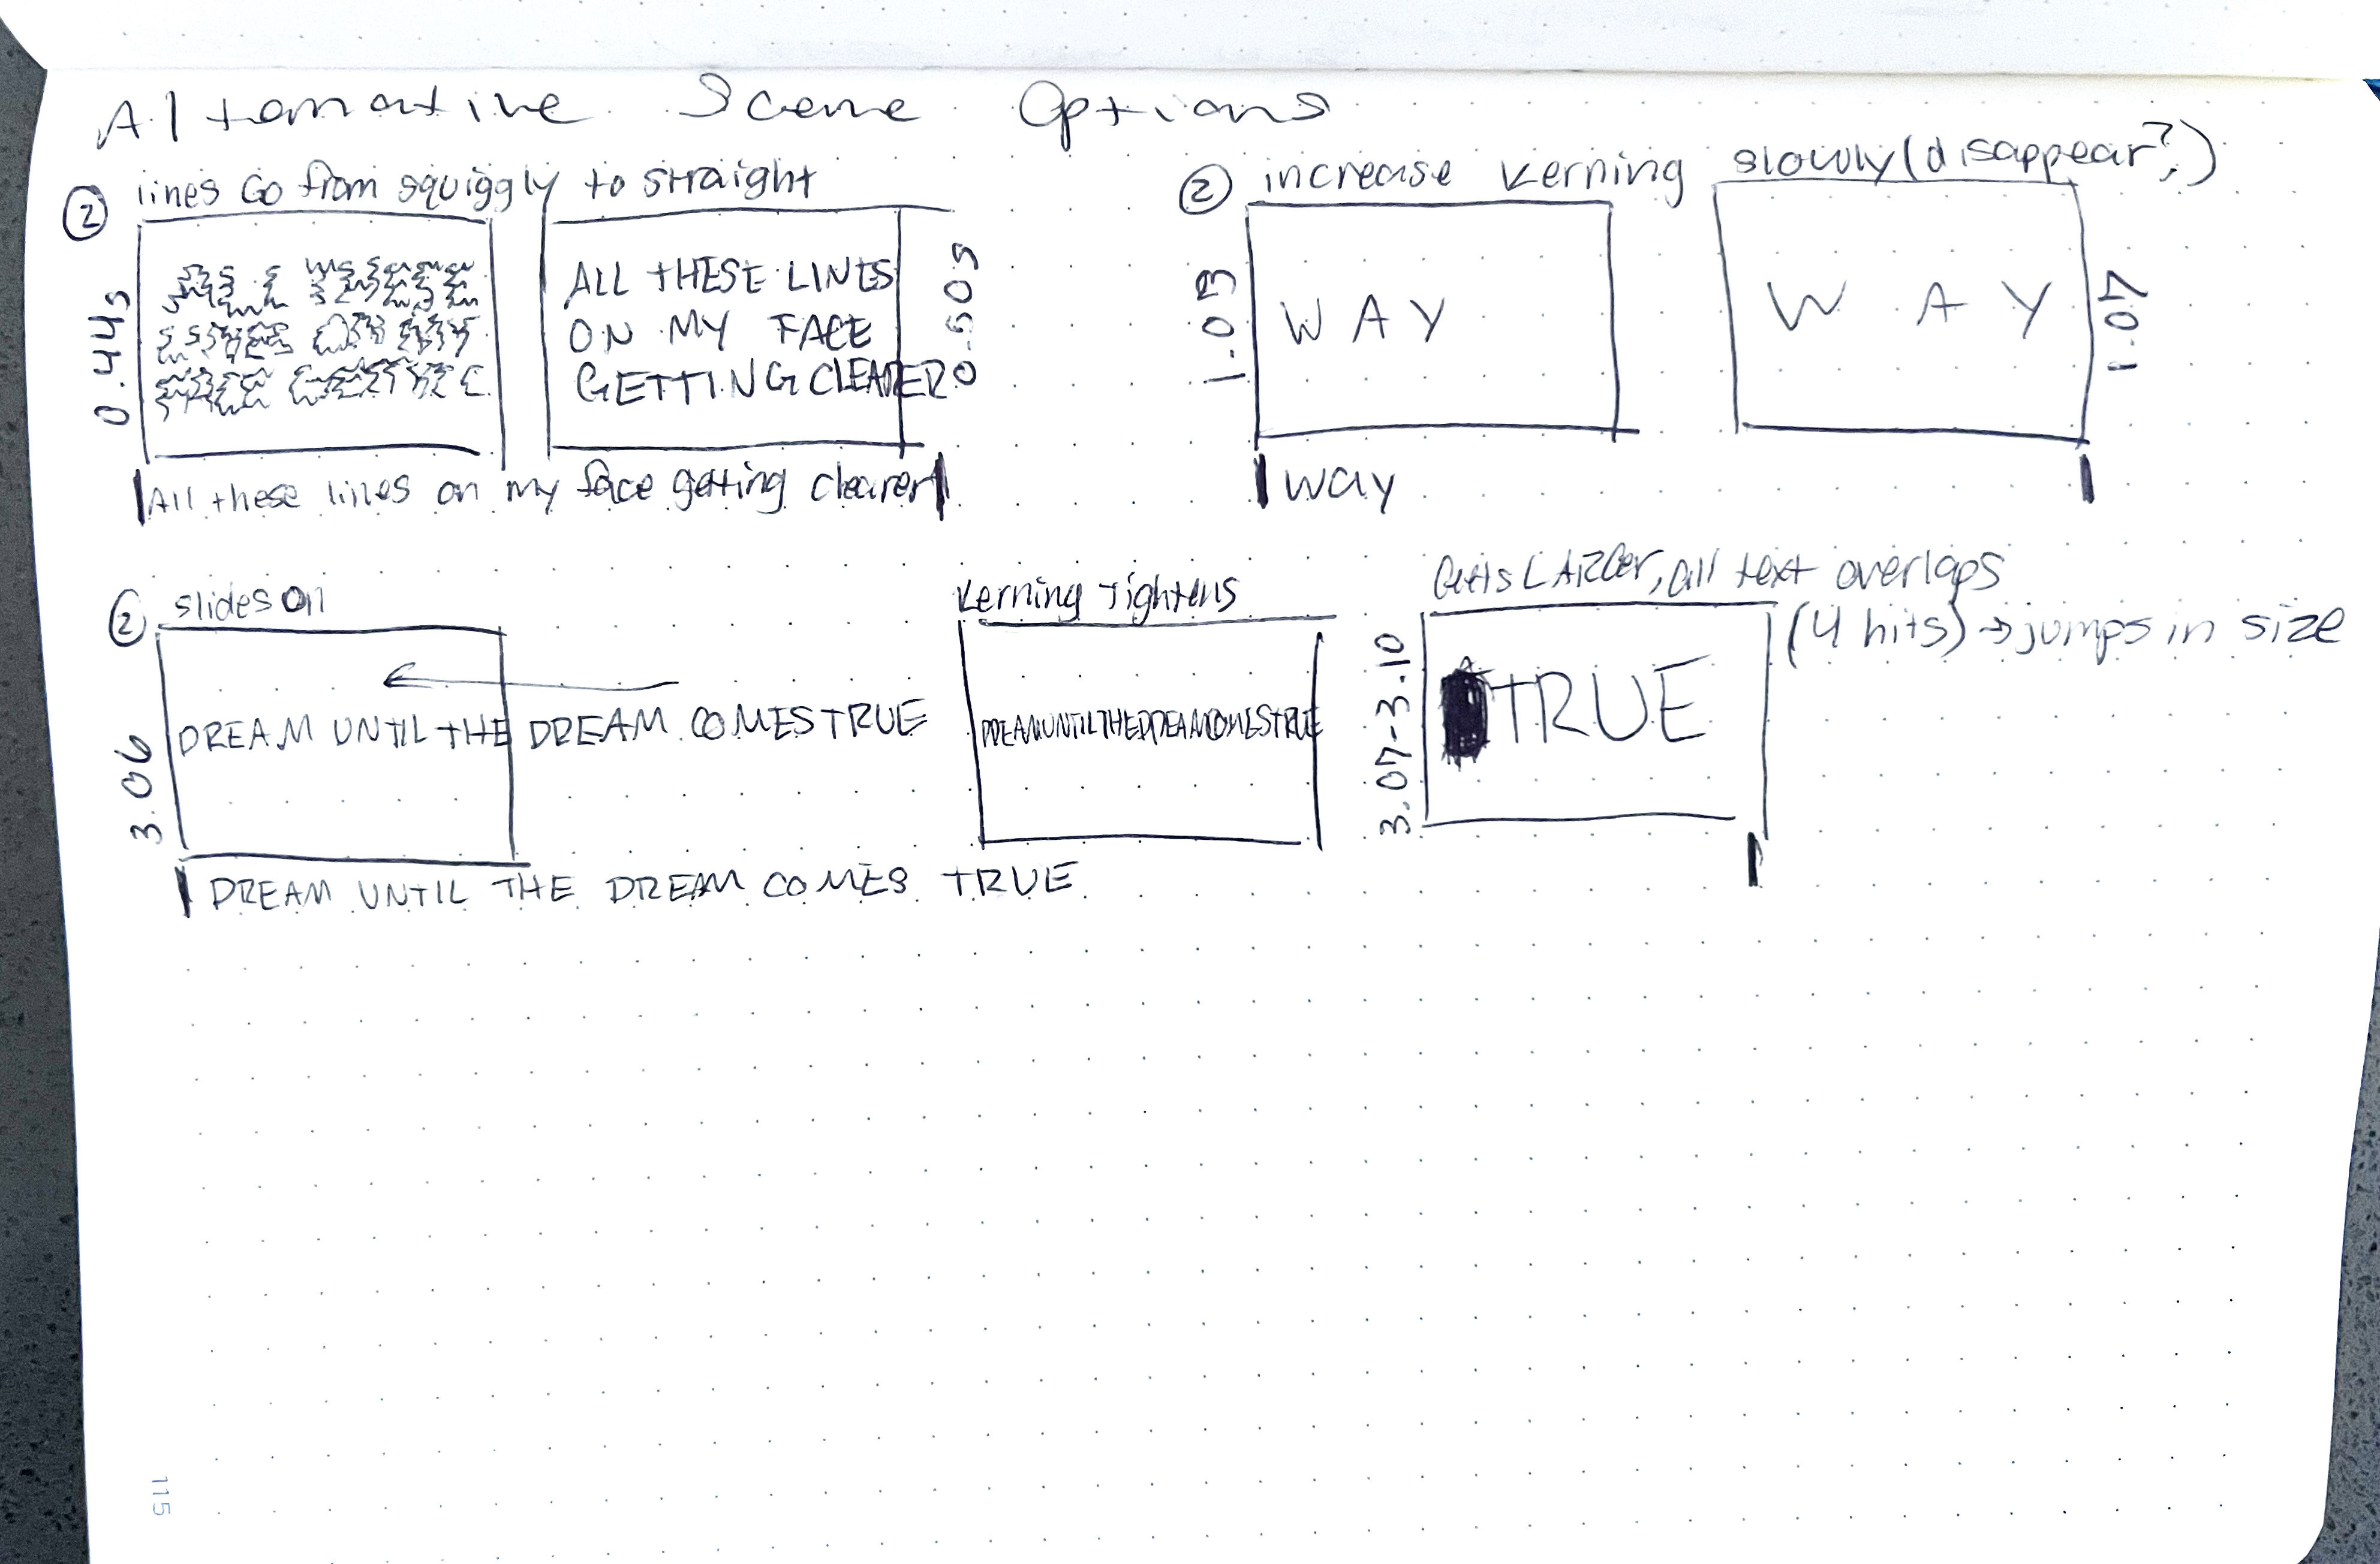 Alternative Scene Options
② lines Go from squiggly to straight
0.44s
ALL THESE LINES
ON MY FACE
GETTING CLEARER
0.50s
All these lines on my face getting clearer
② increase kerning slowly (disappear?)
1.03
W A Y
W A Y
1.07
way
② slides on
3.06
DREAM UNTIL THE DREAM COMES TRUE
DREAM UNTIL THE DREAM COMES TRUE
kerning tightens
DREAMUNTILTHEDREAMCOMESTRUE
Gets LARGer, all text overlaps
(4 hits) → jumps in size
3.07-3.10
TRUE
115